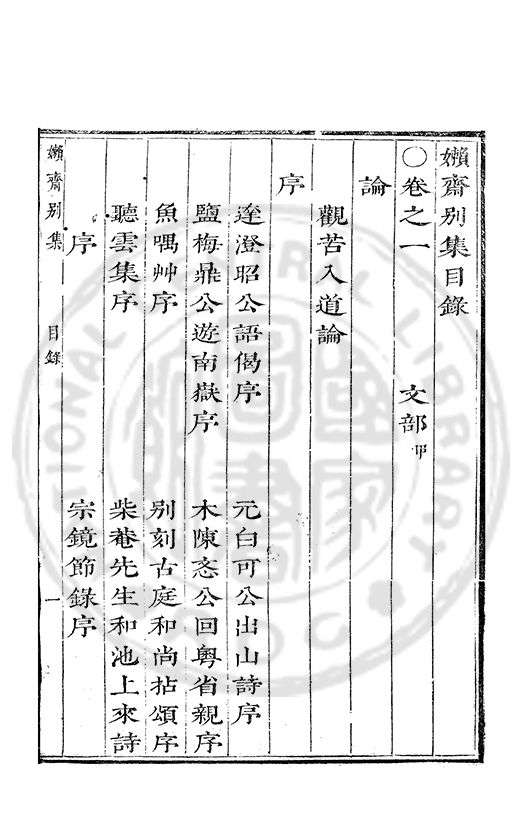 嬾齋別集目錄
○卷之一 文部甲
論
觀苦入道論
序
達澄昭公語偈序 元白可公出山詩序
鹽梅鼎公遊南嶽序 木陳忞公回粵省親序
魚喁艸序 別刻古庭和尚拈頌序
聽雲集序 柴菴先生和池上來詩
序 宗鏡節錄序
嬾齋别集 目錄 一